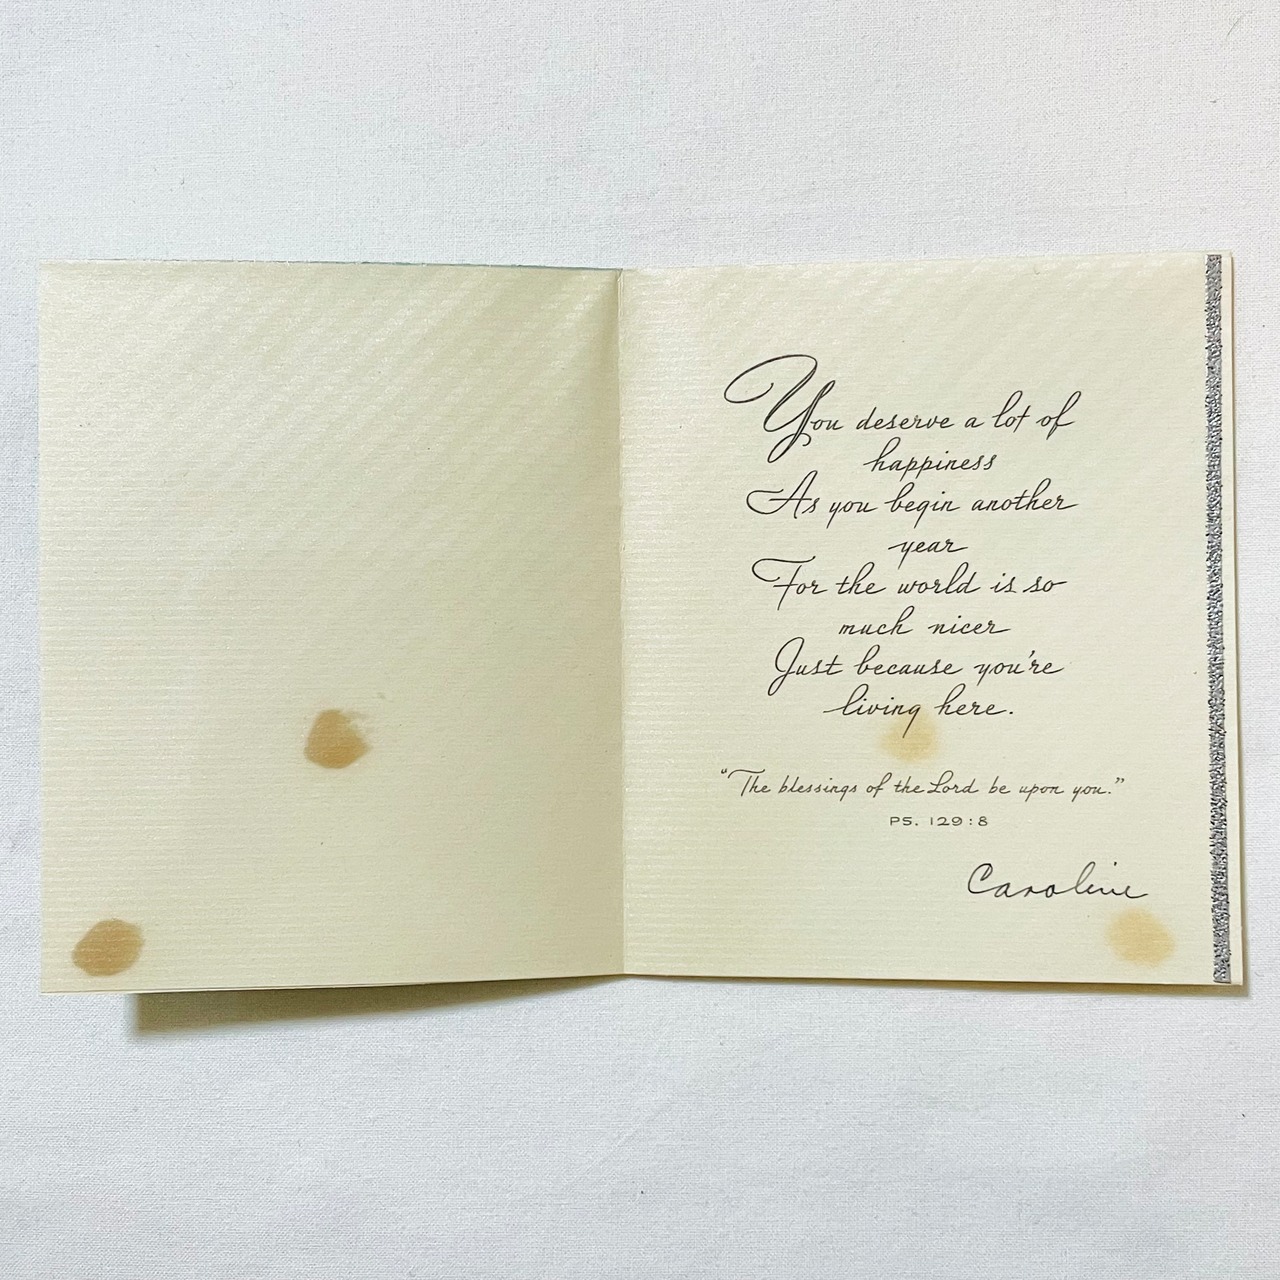 You deserve a lot of
happiness
As you begin another
year
For the world is so
much nicer
Just because you're
living here.
"The blessings of the Lord be upon you."
PS. 129:8
Caroline